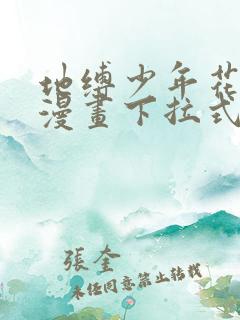 地缚少年花
漫畫下拉式
張奎
未经同意禁止转载